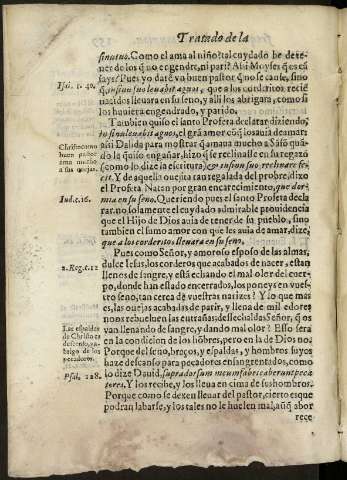 Tratado de la
sinu tuo. Como el ama al niño? tal cuydado he de te-
ner de los q̃ no engendre, ni pari? A si Moyses q̃ es eẽ
says? Pues yo darè vn buen pastor q̃ no se canse, sino
Isai. c. 40.
q̃ in sinu suo leuabit agnos, que a los corderitos recie
nacidos lleuara en su seno, y alli los abrigara, como si
los huuiera engendrado, y parido.
Tambien quiso el santo Profeta declarar diziendo,
in sinu leuabit agnos, el grã amor cõ q̃ los auia de amar:
Christo como
buen pastor
ama mucho
a sus ouejas.
assi Dalida para mostrar q̃ amaua mucho a Sãsõ quã-
do le quiso engañar, hizo q̃ se reclinasse en su regazo
(como lo dize la escritura) & in sinu suo, reclinare fe-
cit. Y de aquella ouejita tan regalada del pobre, dixo
Iud. c. 16.
el Profeta Natan por gran encarecimiento, que dor-
mia en su seno. Queriendo pues el santo Profeta decla
rar, no solamente el cuydado, admirable prouidencia
que el Hijo de Dios auia de tener de su pueblo, sino
tambien el sumo amor con que les auia de amar, dize,
que a los corderitos lleuara en su seno.
Pues como Señor, y amoroso esposo de las almas,
2. Reg. c. 12
dulce Iesus, los corderos que acabados de nacer, estan
llenos de sangre, y està echando el mal olor del cuer-
po, donde han estado encerrados, los poneys en vues-
tro seno, tan cerca de vuestras narizes? Y lo que mas
es, las ouejas acabadas de parir, y llena de mil edores
nos rebueluen las entrañas, esse echaldas Señor, q̃ os
Las espaldas
de Christo es
descanso, y a-
brigo de los
pecadores.
van llenando de sangre, y dando mal olor? Esso serà
en la condicion de los hõbres, pero en la de Dios no:
Porque del seno, braços, y espaldas, y hombros suyos
haze descanso para pecadores ensangrentados, como
Psal. 128.
lo dize Dauid, supra dorsum meum fabricauerunt pecca
tores. Y los recibe, y los lleua en cima de sus hombros.
Porque como se dexen lleuar del pastor, cierto es que
podran labarse, y los tales no le huelen mal, aũq̃ abor
rece